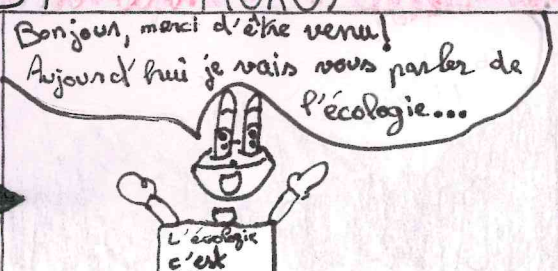 Bonjour, merci d'être venu!
Aujourd'hui je vais vous parler de
l'écologie...
L'écologie
c'est